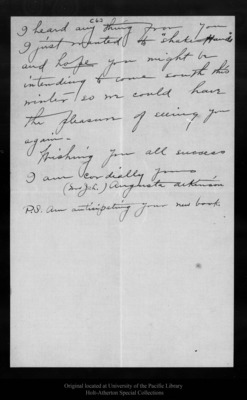 C63
I heard any thing from you
I just wanted to "shake Hands"
and hope you might be
intending to come south this
winter so we could have
the pleasure of seeing you
again.
Wishing you all success
I am cordially yours
(Mrs Jch.) Augusta Atkinson
P.S. Am anticipating your new book.
Original located at University of the Pacific Library
Holt-Atherton Special Collections